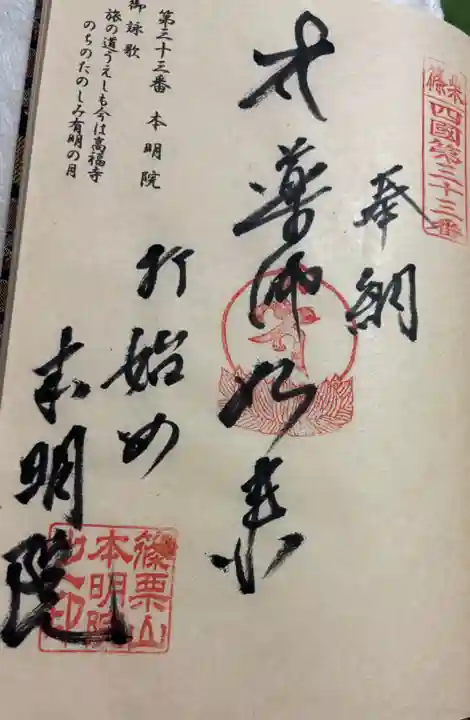 篠栗
四國第三十三番
奉納
大薬師如来
打始め
本明院
第三十三番 本明院
御詠歌
旅の道うえしも今は高福寺
のちのたのしみ有明の月
篠栗山
本明院